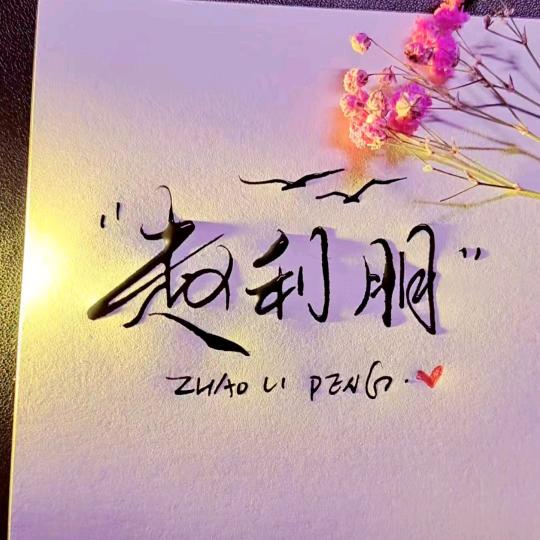 "赵利朋"
ZHAO LI PENG.